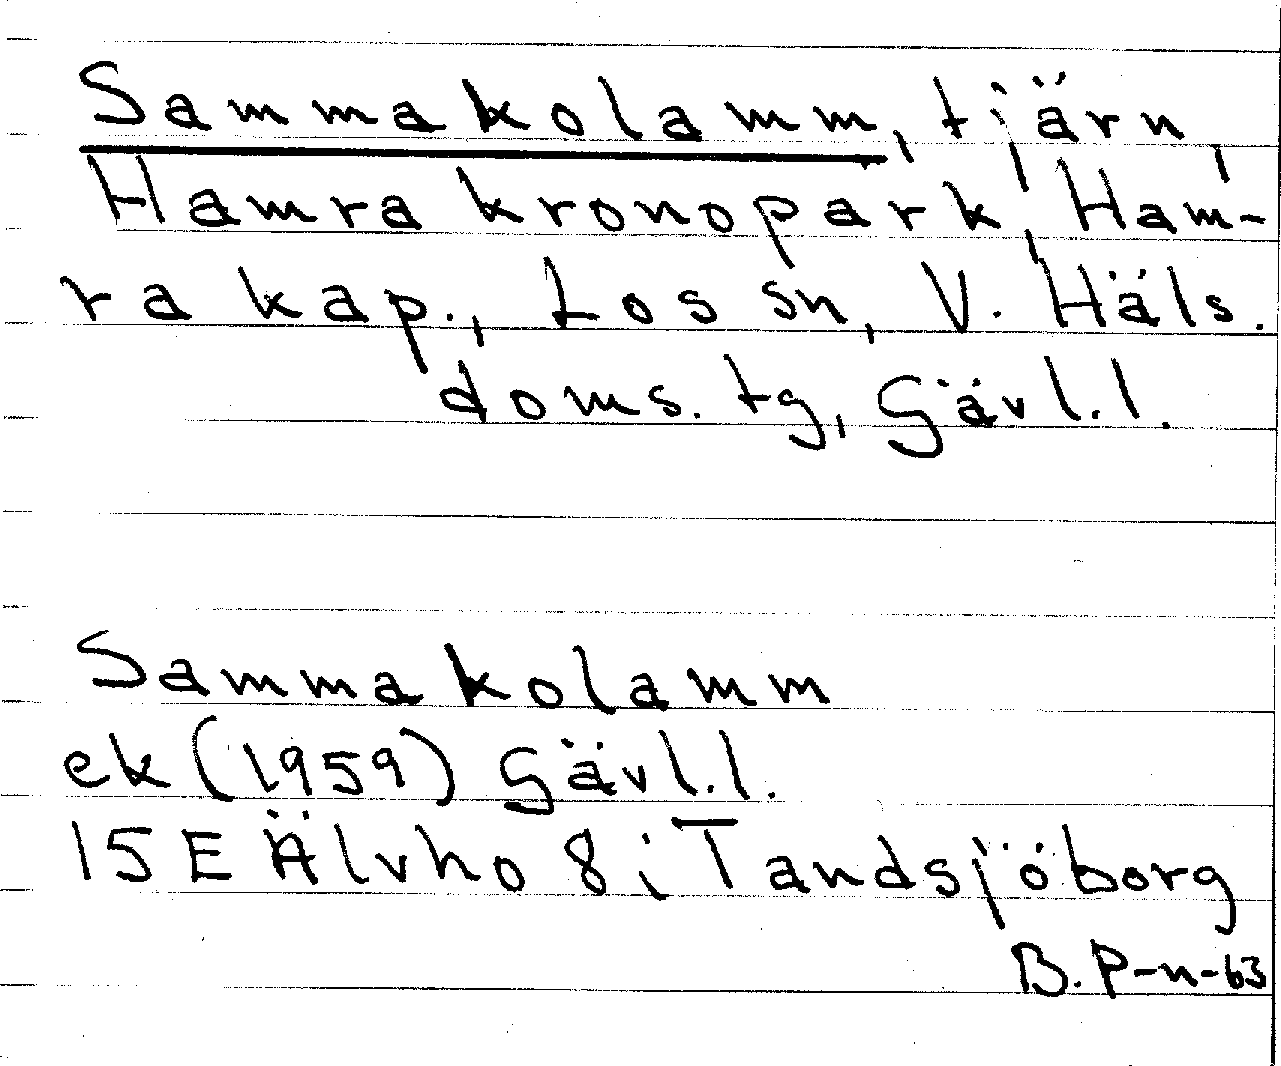 Sammakolamm, tjärn,
Hamra kronopark, Ham-
ra kap., Los sn, V. Häls.
doms. tg, Gävl.l.
Sammakolamm
ek (1959) Gävl.l.
15 E Älvho 8 i Tandsjöborg
B. P-n-63